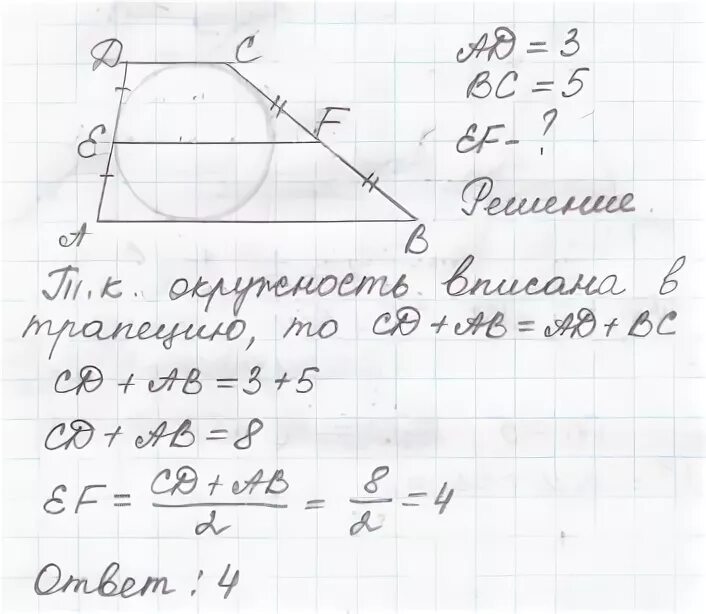 D C
E F
A B
AD = 3
BC = 5
EF - ?
Решение.
Т.к. окружность вписана в
трапецию, то CD + AB = AD + BC
CD + AB = 3 + 5
CD + AB = 8
EF = (CD + AB)/2 = 8/2 = 4
Ответ: 4